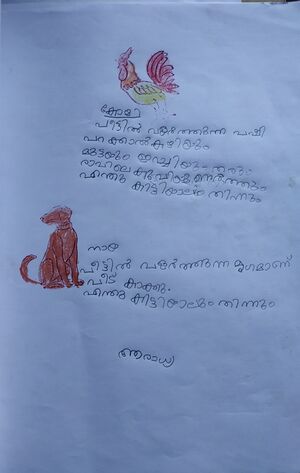 കോഴി
വീട്ടിൽ വളർത്തുന്ന പക്ഷി
പറക്കാൽ കഴിയും
മുട്ടയും ഇറച്ചിയും തരും
രാവിലെ കൂവിയുണർത്തും
എന്തു കിട്ടിയാലും തിന്നും
നായ
വീട്ടിൽ വളർത്തുന്ന മൃഗമാണ്
വീട് കാക്കും
എന്തു കിട്ടിയാലും തിന്നും
ആരാധ്യ